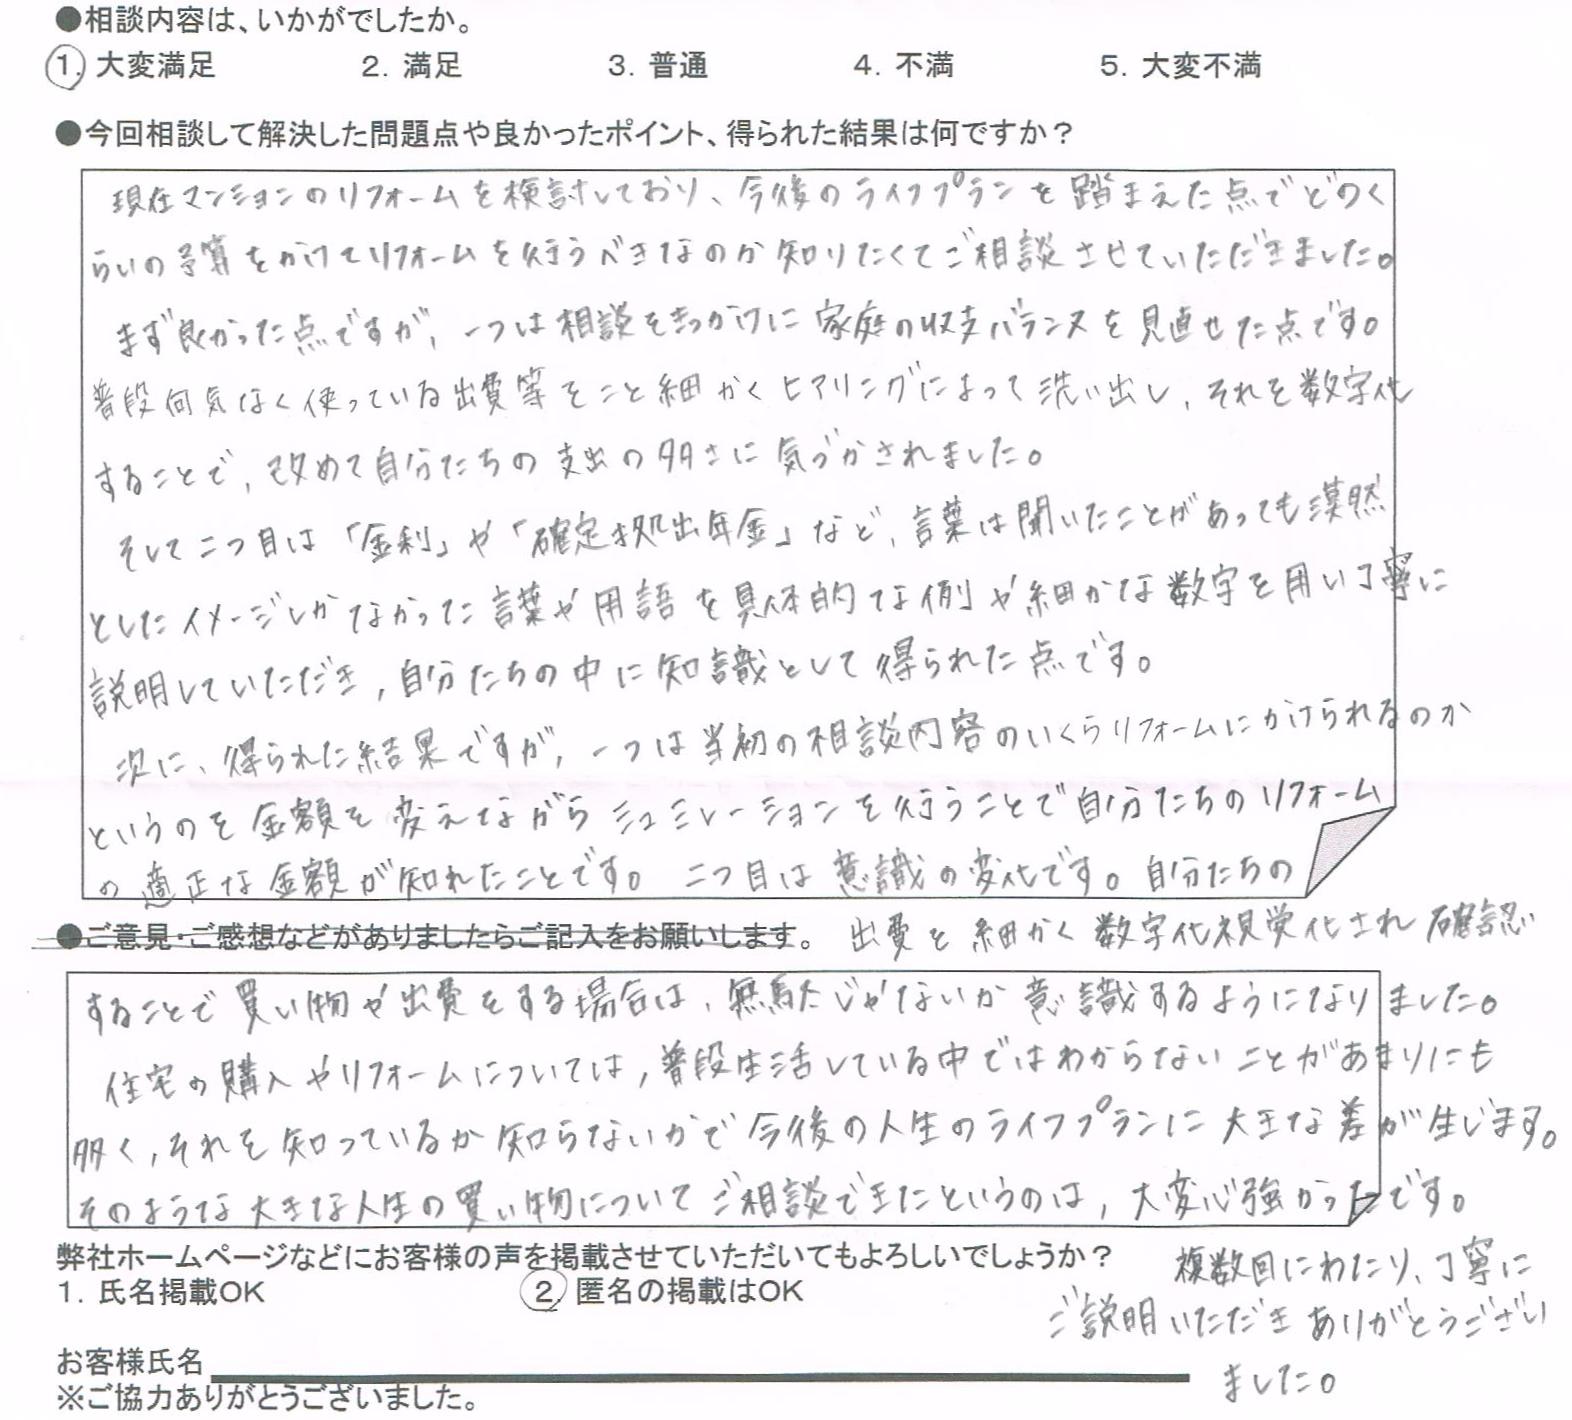 ●相談内容は、いかがでしたか。
1. 大変満足 2. 満足 3. 普通 4. 不満 5. 大変不満
●今回相談して解決した問題点や良かったポイント、得られた結果は何ですか？
現在マンションのリフォームを検討しており、今後のライフプランを踏まえた点でどのく
らいの予算をかけてリフォームを行うべきなのか知りたくてご相談させていただきました。
まず良かった点ですが、一つは相談をきっかけに家庭の収支バランスを見直せた点です。
普段何気なく使っている出費等をこと細かくヒアリングによって洗い出し、それを数字化
することで、改めて自分たちの支出の多さに気づかされました。
そして二つ目は「金利」や「確定拠出年金」など、言葉は聞いたことがあっても漠然
としたイメージしかなかった言葉や用語を具体的な例や細かな数字を用い丁寧に
説明していただき、自分たちの中に知識として得られた点です。
次に、得られた結果ですが、一つは当初の相談内容のいくらリフォームにかけられるのか
というのを金額を変えながらシュミレーションを行うことで自分たちのリフォーム
の適正な金額が知れたことです。二つ目は意識の変化です。自分たちの
●ご意見・ご感想などがありましたらご記入をお願いします。 出費を細かく数字化視覚化され確認
することで買い物や出費をする場合は、無駄じゃないか意識するようになりました。
住宅の購入やリフォームについては、普段生活している中ではわからないことがあまりにも
多く、それを知っているか知らないかで今後の人生のライフプランに大きな差が生じます。
そのような大きな人生の買い物についてご相談できたというのは、大変心強かったです。
弊社ホームページなどにお客様の声を掲載させていただいてもよろしいでしょうか？
1. 氏名掲載OK 2. 匿名の掲載はOK
複数回にわたり、丁寧に
ご説明いただきありがとうござい
ました。
お客様氏名
※ご協力ありがとうございました。